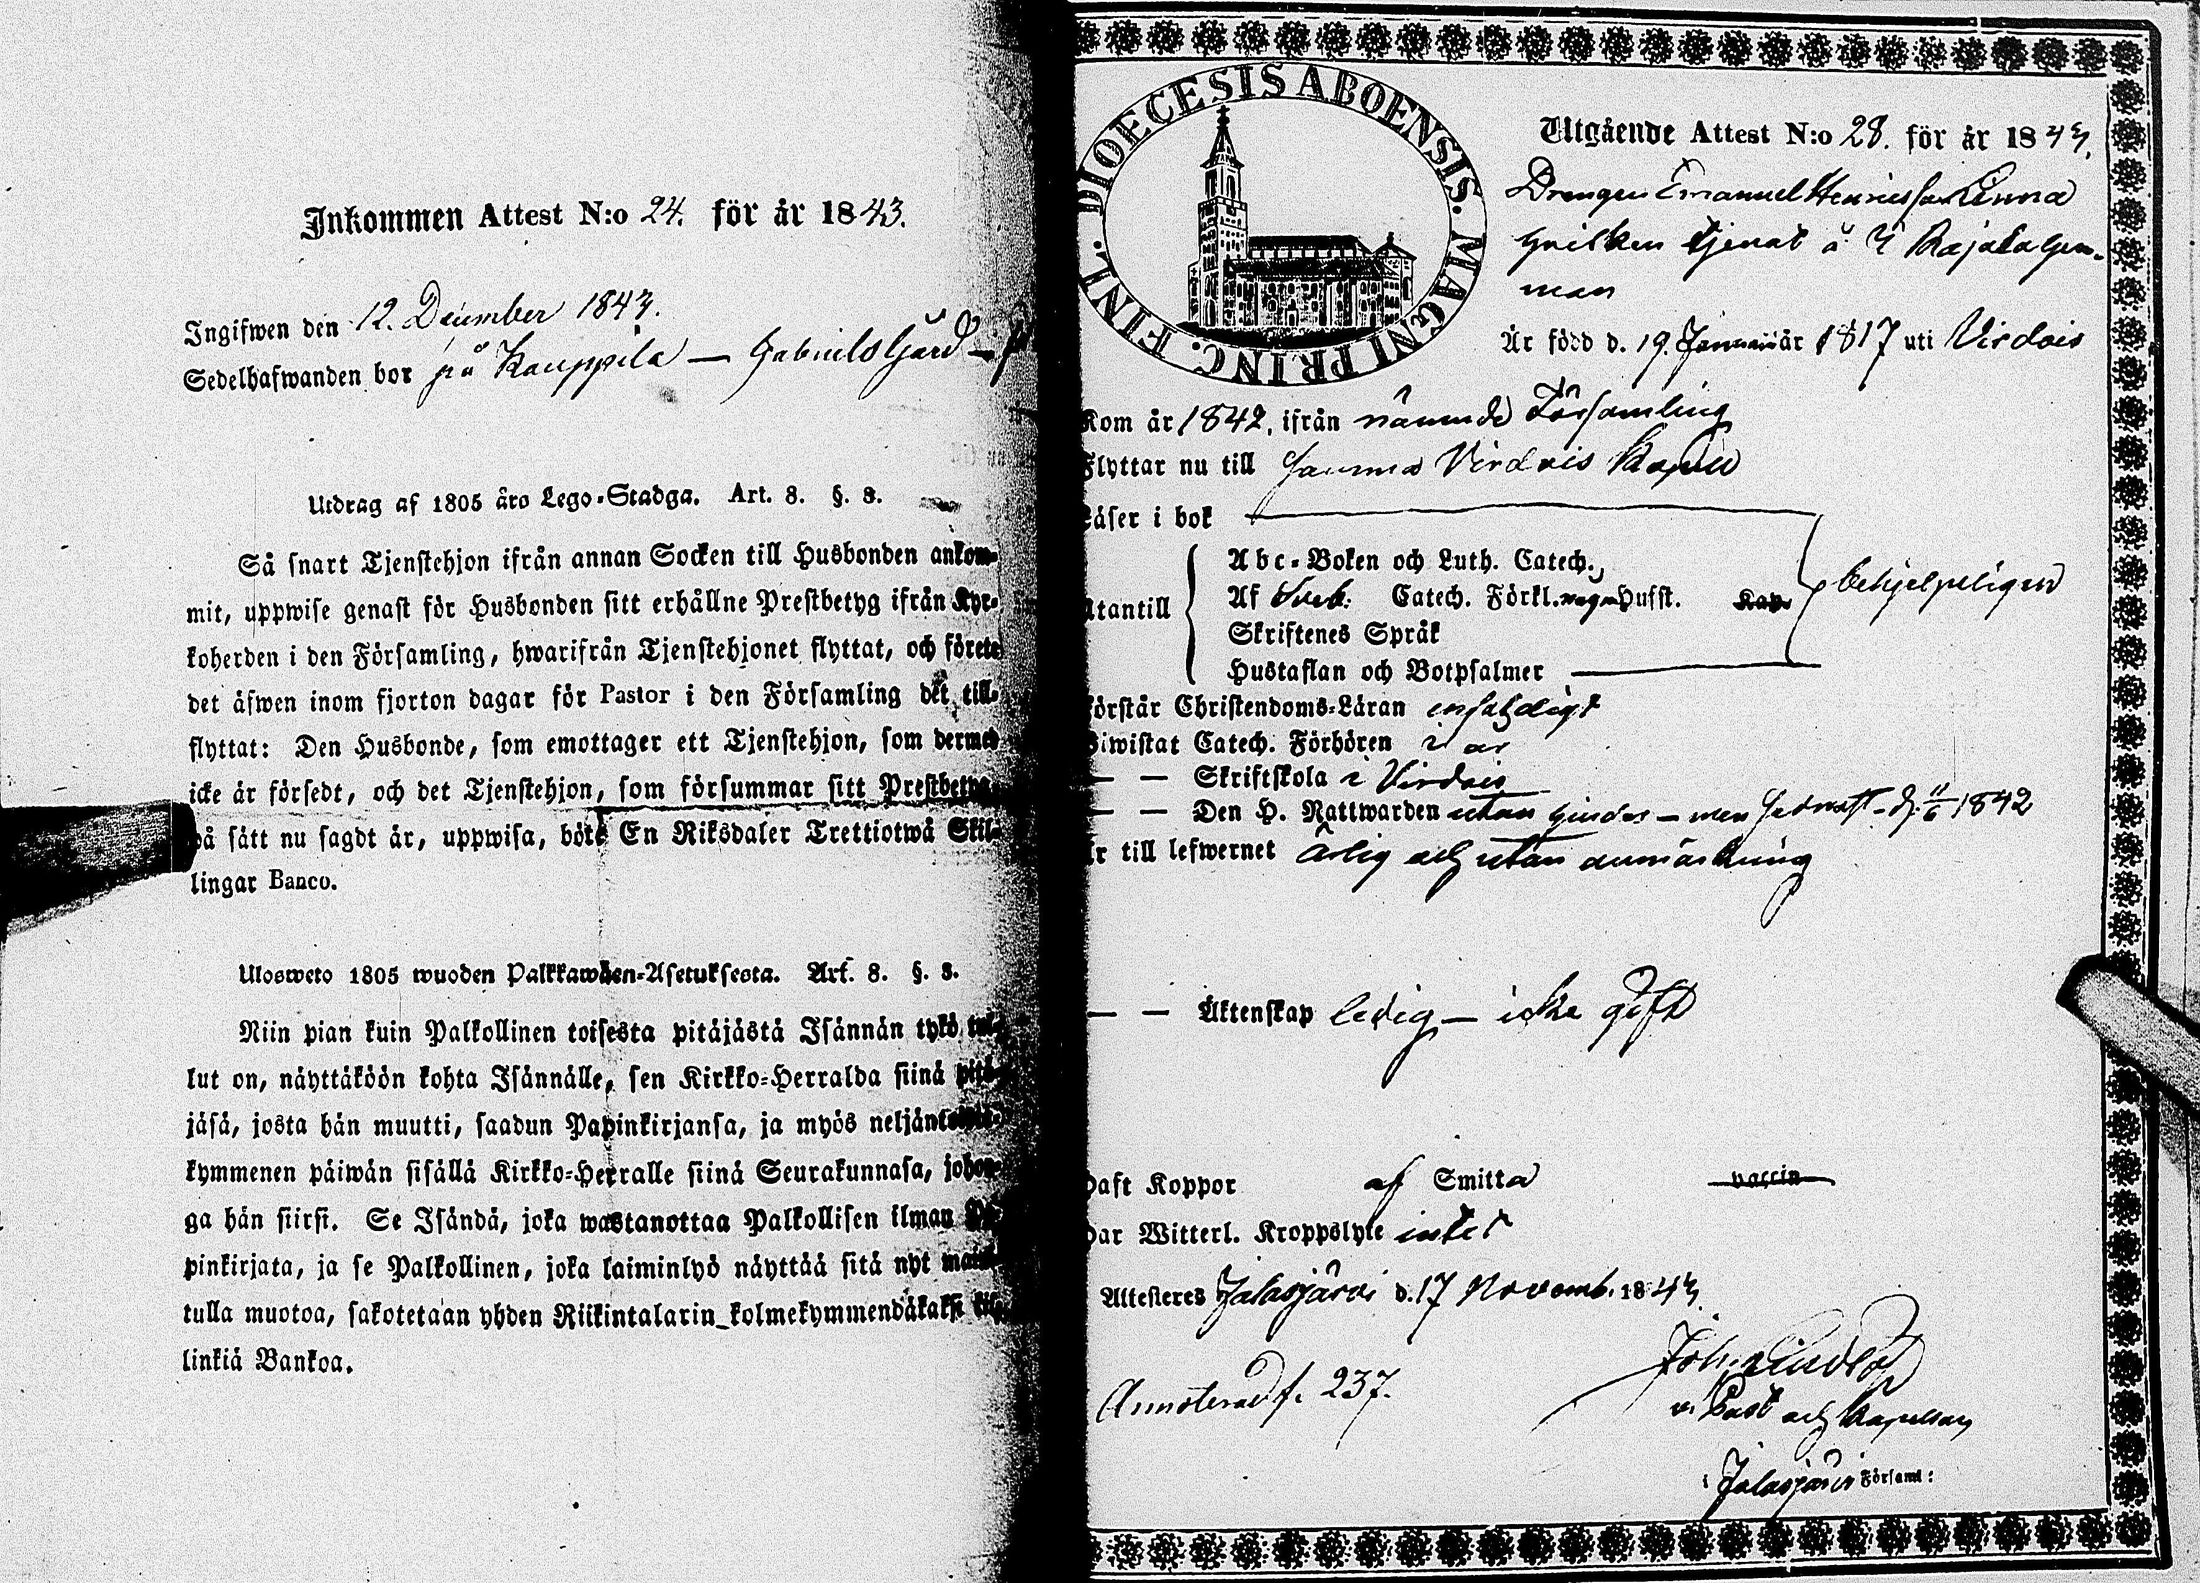 Inkommen Attest N:o 24. för år 1843.
Ingifwen den 12. December 1843.
Sedelhafwanden bor på Kauppila — Gabrielsgård —
Utdrag af 1805 års Lego-Stadga. Art. 8. §. 3.
Så snart Tjenstehjon ifrån annan Socken till Husbonden ankom-
mit, uppwise genast för Husbonden sitt erhållne Prestbetyg ifrån Kyr-
koherden i den Församling, hwarifrån Tjenstehjonet flyttat, och förete
det äfwen inom fjorton dagar för Pastor i den Församling det till-
flyttat: Den Husbonde, som emottager ett Tjenstehjon, som dermed
icke är försedt, och det Tjenstehjon, som försummar sitt Prestbetyg
på sätt nu sagdt är, uppwisa, böte En Riksdaler Trettiotwå Skil-
lingar Banco.
Ulosweto 1805 wuoden Palkkawäen-Asetuksesta. Art. 8. §. 3.
Niin pian kuin Palkollinen toisesta pitäjästä Isännän tykö tul-
lut on, näyttäköön kohta Isännälle, sen Kirkko-Herralda siinä pitä-
jäsä, josta hän muutti, saadun Papinkirjansa, ja myös neljäntoista-
kymmenen päiwän sisällä Kirkko-Herralle siinä Seurakunnasa, johon-
ga hän siirsi. Se Isändä, joka wastanottaa Palkollisen ilman Pa-
pinkirjata, ja se Palkollinen, joka laiminlyö näyttää sitä nyt mainit-
tulla muotoa, sakotetaan yhden Riikintalarin kolmekymmendäkaksi kil-
linkiä Bankoa.
DIOECESIS ABOENSIS. MAGNI PRINC. FINL.
Utgående Attest N:o 28. för år 1843.
Drengen Emanuel Henricsson Linna
hvilken tjenat å Rajala hem-
man
Är född d. 19. Januari år 1817 uti Virdois
Kom år 1842, ifrån nämnde Församling
Flyttar nu till samma Virdois Kapell
Läser i bok
Utantill
Abc-Boken och Luth. Catech.
Af Sveb. Catech. Förkl. Hufst. Kap.
Skriftenes Språk
Hustaflan och Botpsalmer
behjelpeligen
Förstår Christendoms-Läran enfaldigt
Biwistat Catech. Förhören i år
— — Skriftskola i Virdois
— — Den H. Nattwarden utan hinder — men sednast d. 11/6 1842
Är till lefwernet Ärlig och utan anmärkning
— — Äktenskap ledig — icke gift
Haft Koppor af Smitta vaccin
Har Witterl. Kroppslyte intet
Attesteres Jalasjärvi d. 17 Novemb. 1843.
Annoterad f. 237.
v. Past och Kapellan
i Jalasjärvi Församl: